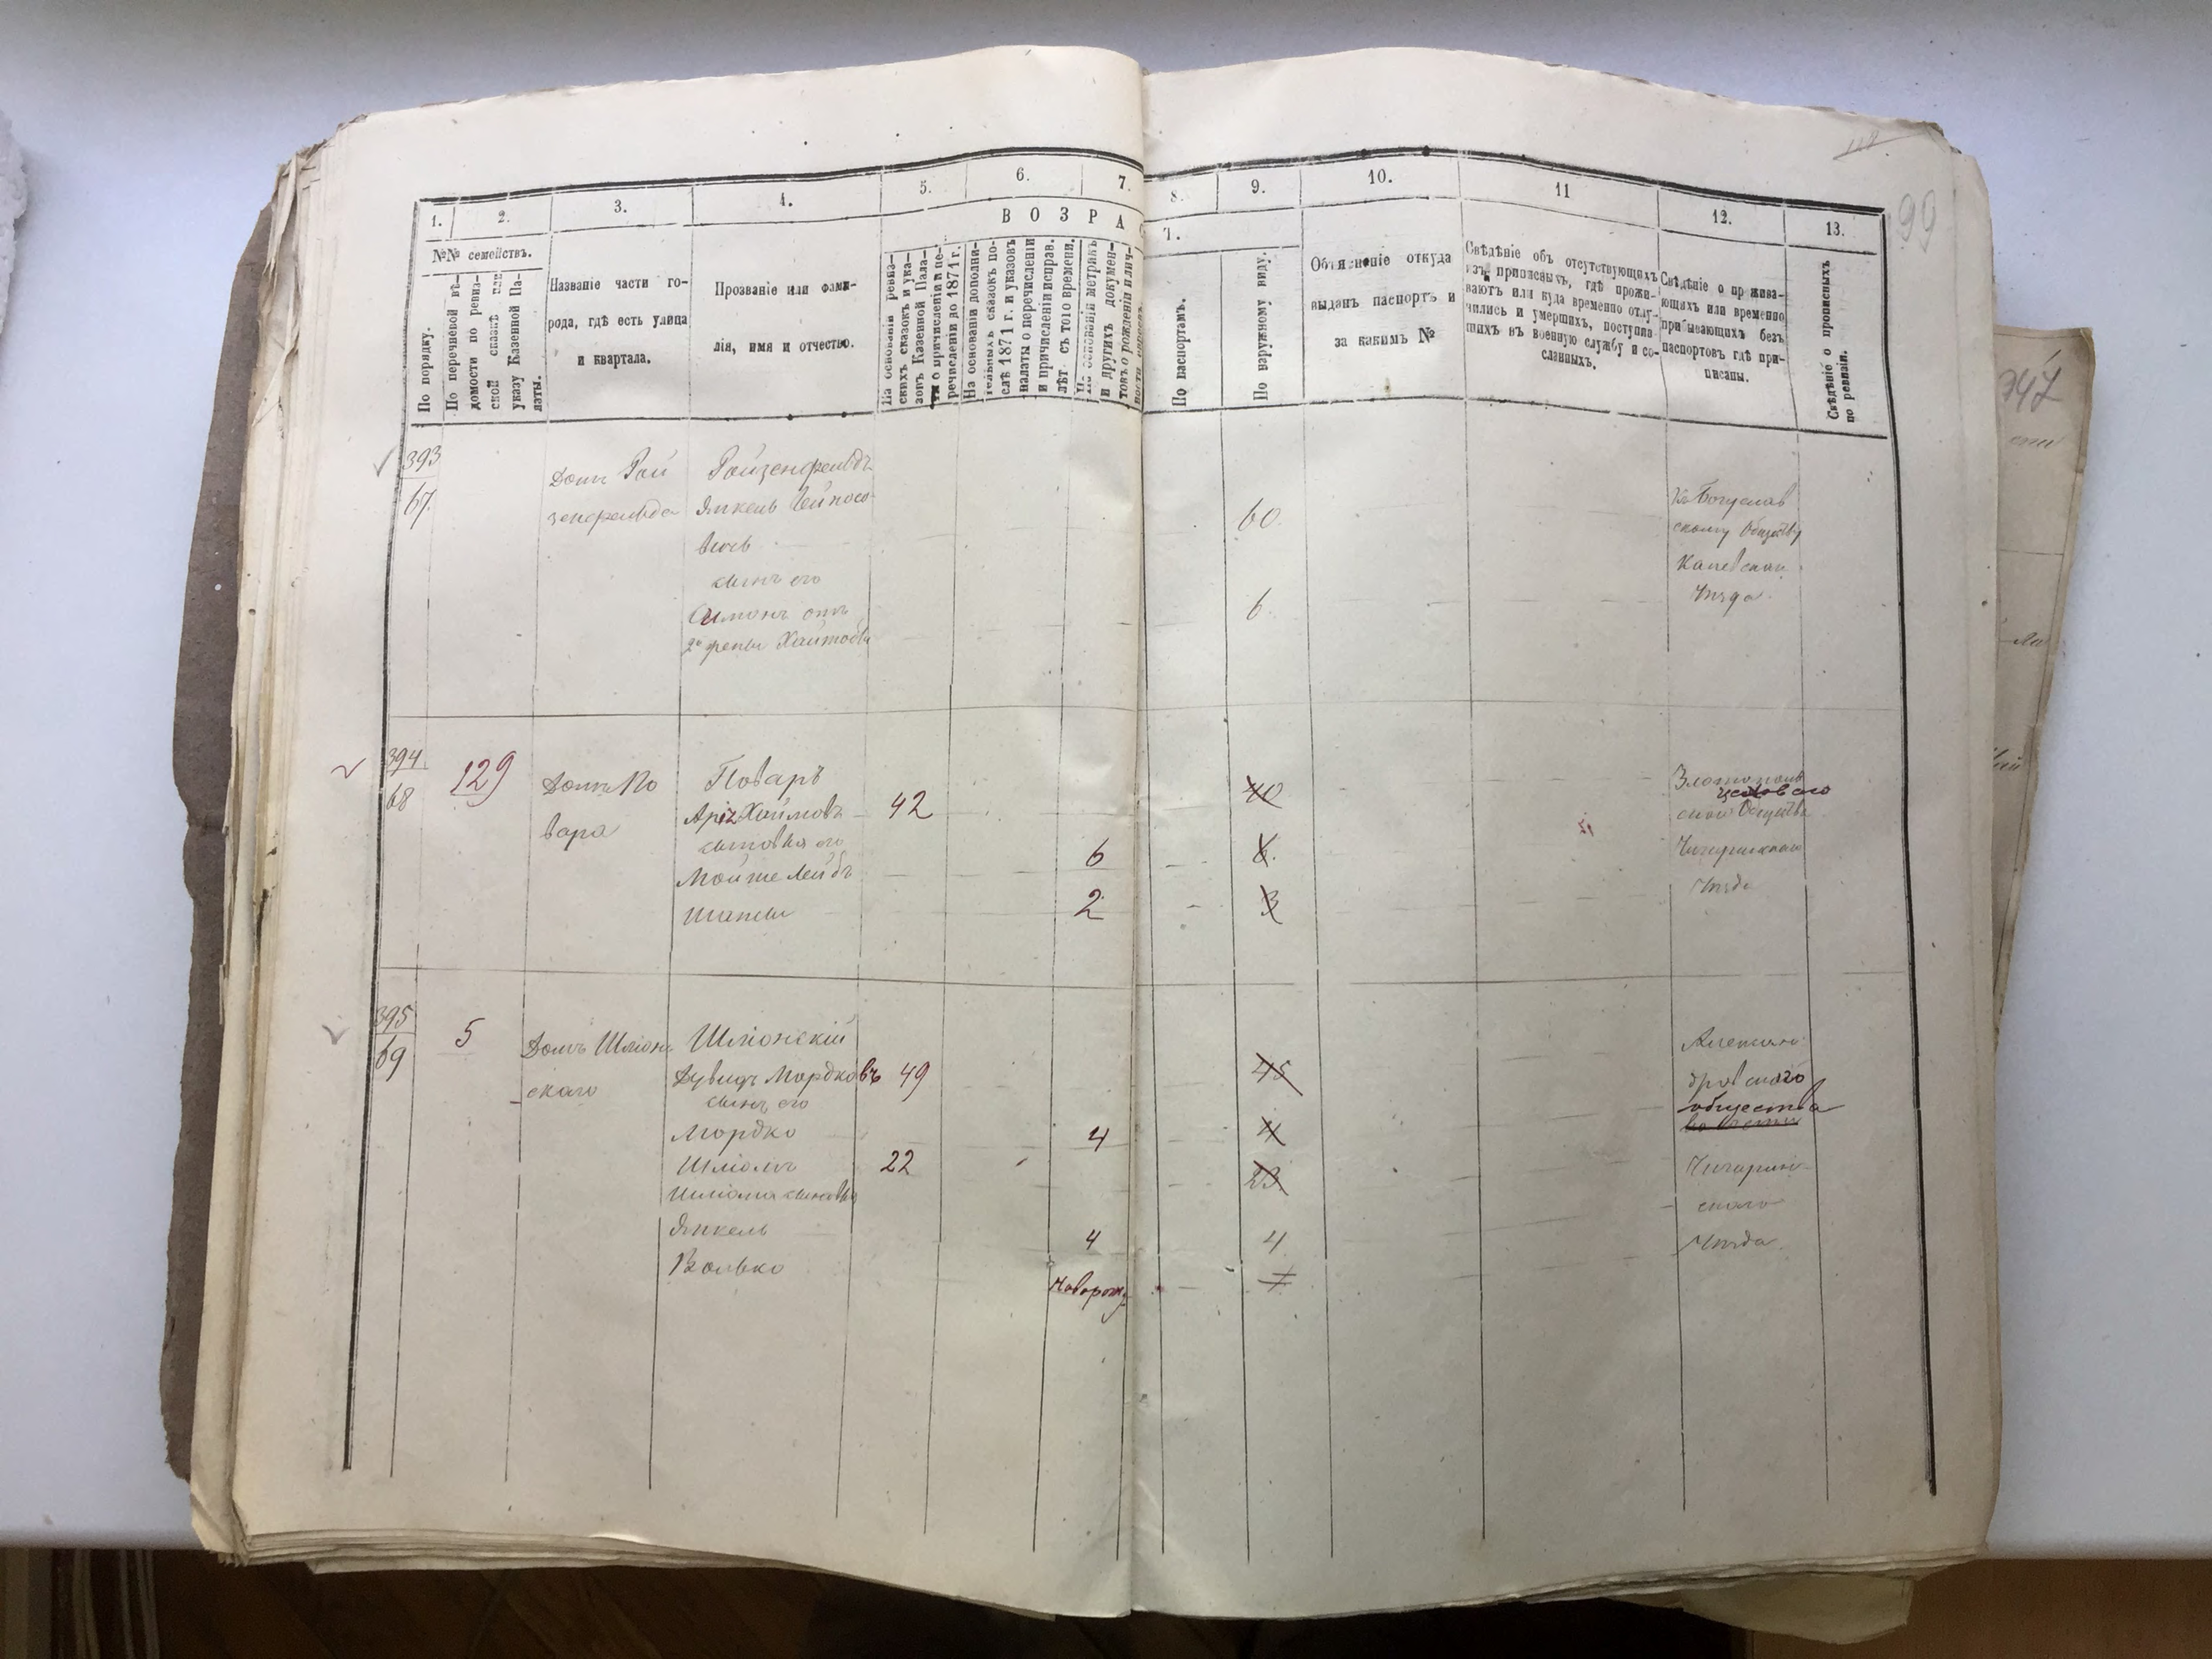 118
99
1.
2.
3.
4.
5.
6.
7.
8.
9.
10.
11
12.
13.
№№ семействъ.
В О З Р А С
Т.
По порядку.
По перечневой вѣ-
домости по ревиз-
ской сказкѣ или
указу Казенной Па-
латы.
Названіе части го-
рода, гдѣ есть улица
и квартала.
Прозваніе или фами-
лія, имя и отчество.
На основаніи ревиз-
скихъ сказокъ и ука-
зовъ Казенной Пала-
ты о причисленіи и пе-
речисленіи до 1871 г.
На основаніи дополни-
тельныхъ сказокъ по-
слѣ 1871 г. и указовъ
палаты о перечисленіи
и причисленіи исправ.
лѣт. съ того времени.
На основаніи метрикъ
и другихъ докумен-
товъ о рожденіи и лич-
По паспортамъ.
По наружному виду.
Объясненіе откуда
выданъ паспортъ и
за какимъ №
Свѣдѣніе объ отсутствующихъ
изъ приписныхъ, гдѣ прожи-
ваютъ или куда временно отлу-
чились и умершихъ, поступив-
шихъ въ военную службу и со-
сланныхъ.
Свѣдѣніе о прожива-
ющихъ или временно
прибывающихъ безъ
паспортовъ гдѣ при-
писаны.
Свѣдѣніе о прописныхъ
по ревизіи.
393
67.
Домъ Рой
зенфельда
Ройзенфельдъ
Янкель
сынъ его
Симонъ отъ
60.
6.
Къ Богуслав
скому Обществу
Каневскаго
Уѣзда.
394
68
129
Домъ По
вара
Поваръ
Аріъ Хаимовъ
сыновья его
Мойше Лейбъ
42
6
2
40
6.
3
Златополь
цехового
ской Общества
Чигиринскаго
Уѣзда
395
69
5
Домъ Шполян
скаго
Дувидъ Мордковъ
сынъ его
Мордко
49
4
22
Янкель
Волько
4
Новорожд.
45
4
23
4
Александ
ровскаго
общества
Чигирин
скаго
Уѣзда.